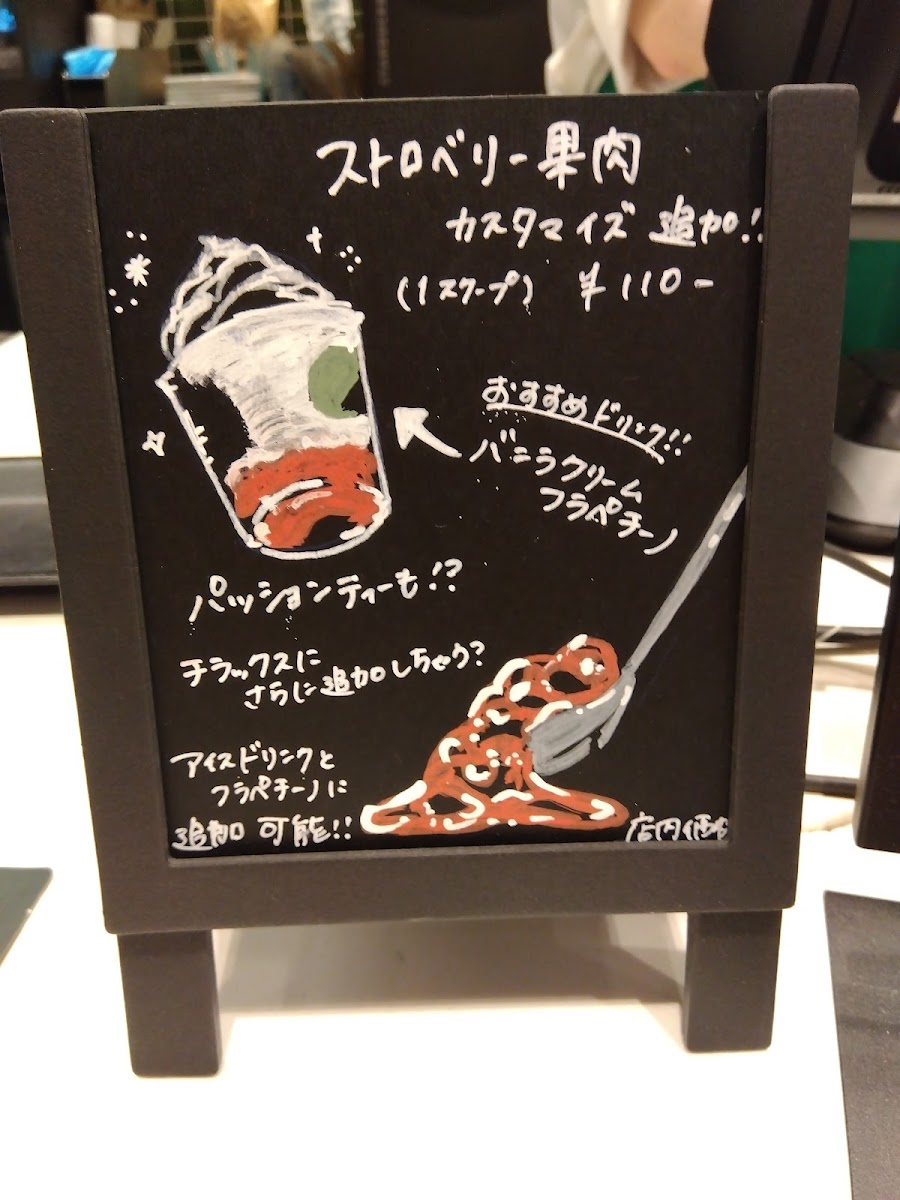 ストロベリー果肉
カスタマイズ 追加!!
(1スクープ) ¥110-
おすすめドリンク!!
バニラクリーム
フラペチーノ
パッションティーも!?
チラックスに
さらに追加しちゃう?
アイスドリンクと
フラペチーノに
追加 可能!!
店内価格